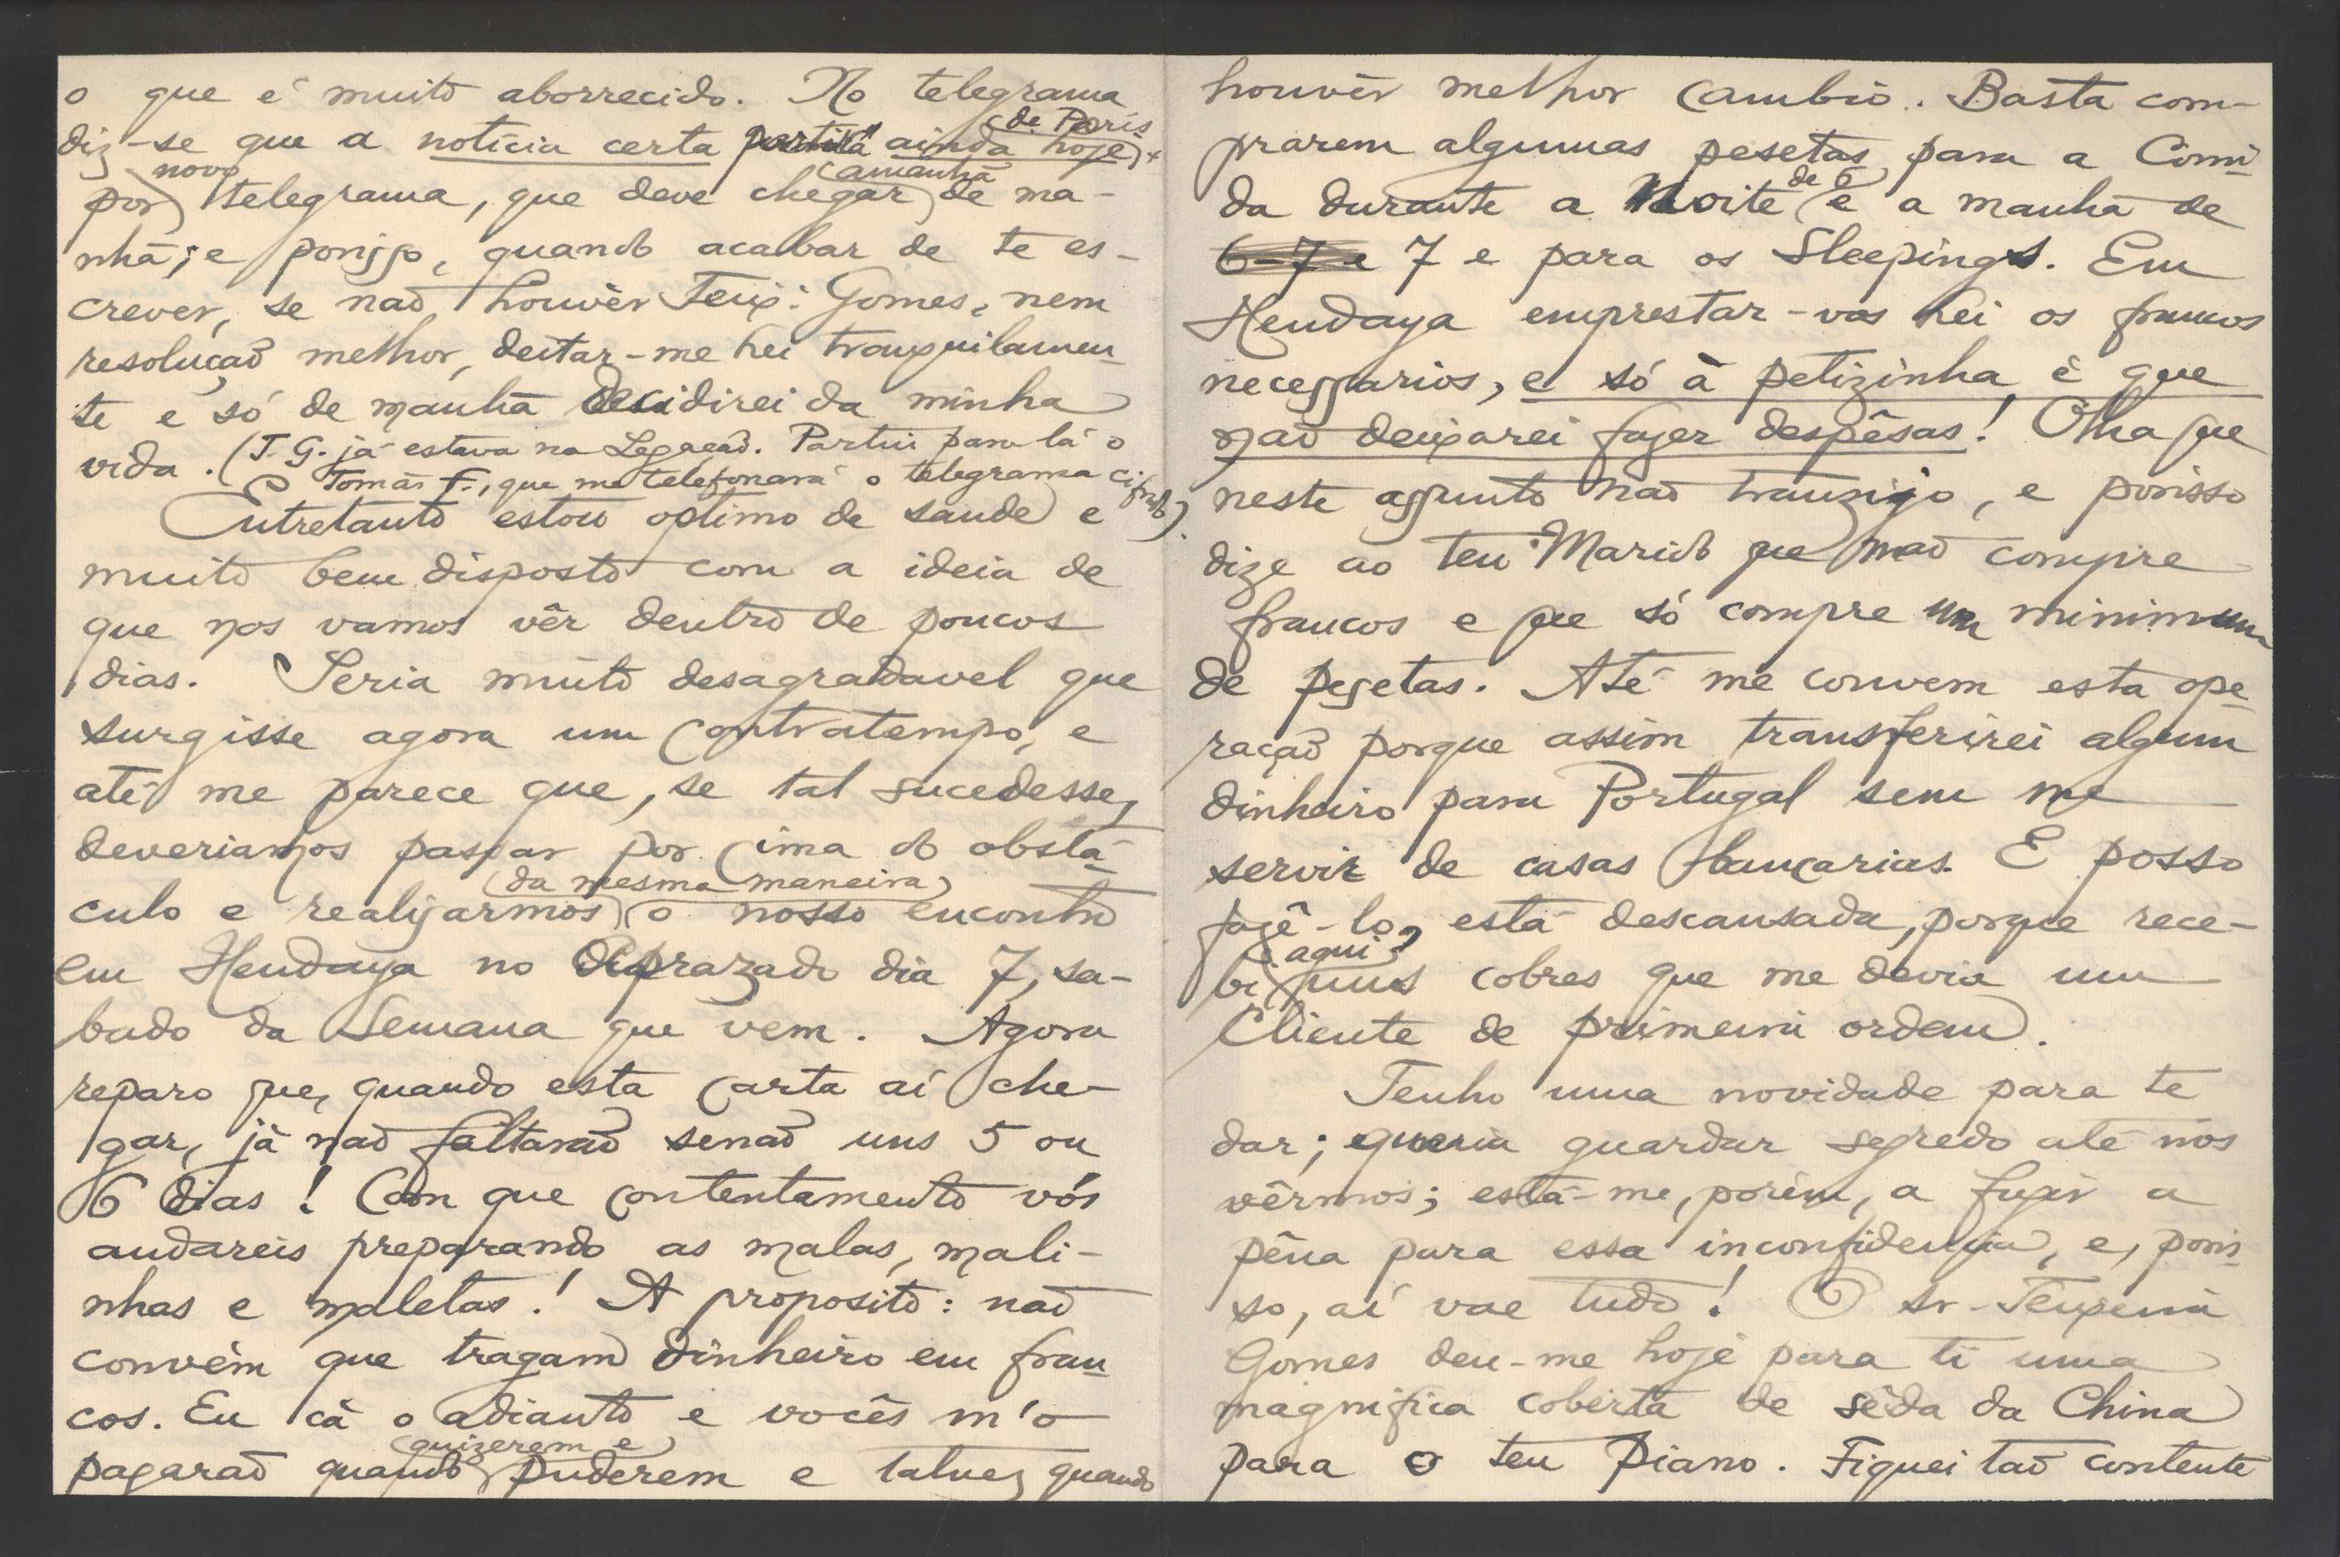 o que é muito aborrecido. No telegrama
de Paris
diz-se que a notícia certa partirá ainda hoje,
novo amanhã
por telegrama, que deve chegar de ma-
nhã; e porisso, quando acabar de te es-
crever, se não houvér Teix: Gomes, nem
resolução melhor, deitar-me hei tranquilamen-
te e só de manhã decidirei da minha
vida. (T. G. já estava na Legação. Partiu para lá o
Tomás F., que me telefonará o telegrama cifrado).
Entretanto estou optimo de saude e
muito bem disposto com a ideia de
que nos vamos vêr dentro de poucos
dias. Seria muito desagradavel que
surgisse agora um contratempo, e
até me parece que, se tal sucedesse,
deveriamos passar por cima do obstá-
da mesma maneira
culo e realizarmos o nosso encontro
em Hendaya no aprazado dia 7, sa-
bado da semana que vem. Agora
reparo que, quando esta carta aí che-
gar, já não faltarão senão uns 5 ou
6 dias! Com que contentamento vós
andareis preparando as malas, mali-
nhas e maletas! A proposito: não
convém que tragam dinheiro em fran-
cos. Eu cá o adianto e vocês m'o
quizerem e
pagarão quando puderem e talvez quando
houvér melhor cambio. Basta com-
prarem algumas pesetas para a comi-
de 6
da durante a noite e a manhã de
6-7 e 7 e para os Sleepings. Em
Hendaya emprestar-vos hei os francos
necessarios, e só à petizinha é que
não deixarei fazer despêsas! Olha que
neste assunto não tranzijo, e porisso
dize ao teu Marido que não compre
francos e que só compre um minimum
de pesetas. Até me convem esta ope-
ração porque assim transferirei algum
dinheiro para Portugal sem me
servir de casas bancarias. E posso
fazê-lo, está descansada, porque rece-
aqui
bi uns cobres que me devia um
Cliente de primeira ordem.
Tenho uma novidade para te
dar; queria guardar segredo até nos
vêrmos; está-me, porém, a fugir a
pêna para essa inconfidencia, e, poris-
so, aí vae tudo! O sr. Teixeira
Gomes deu-me hoje para ti uma
magnifica coberta de sêda da China
para o teu piano. Fiquei tão contente